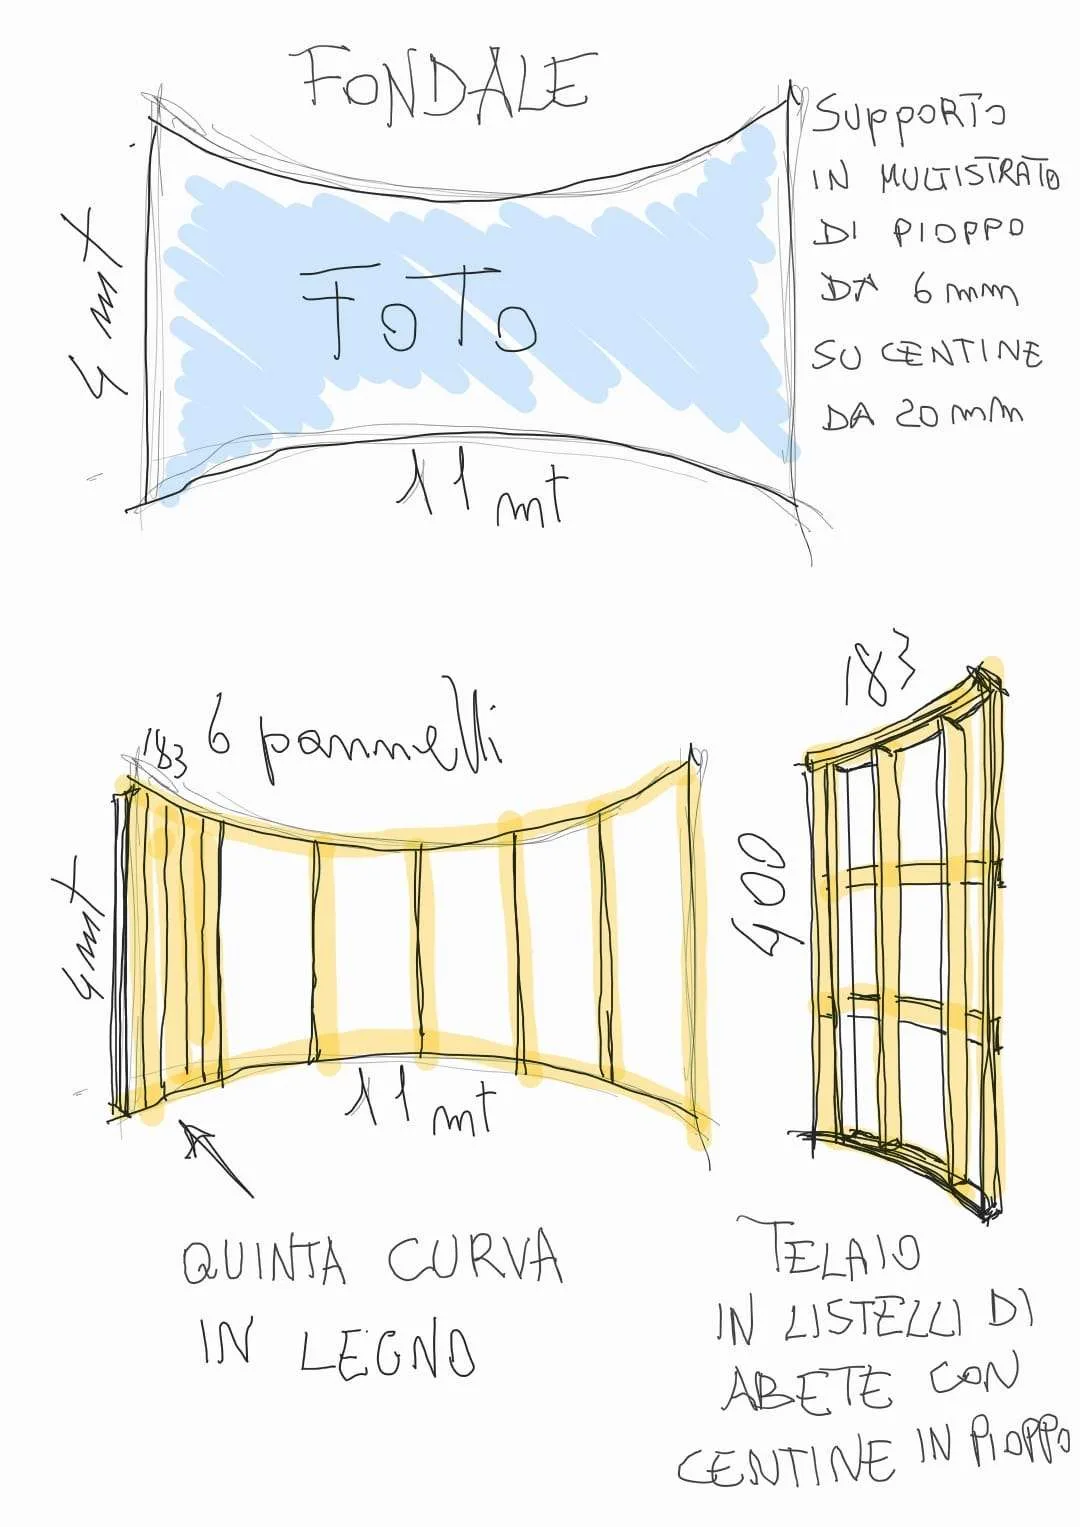 FONDALE
SUPPORTO
IN MULTISTRATO
DI PIOPPO
DA 6 mm
SU CENTINE
DA 20 mm
4 mt
FOTO
11 mt
183
6 pannelli
183
4 mt
400
11 mt
QUINTA CURVA
IN LEGNO
TELAIO
IN LISTELLI DI
ABETE CON
CENTINE IN PIOPPO